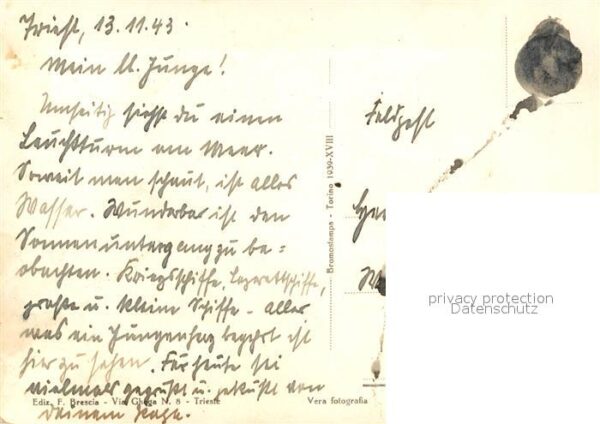 Triest, 13.11.43.
Mein ll. Junge!
Umseitig siehst du einen
Leuchtturm am Meer.
Soweit man schaut, ist alles
Wasser. Wunderbar ist den
Sonnenuntergang zu be=
obachten. Kriegsschiffe, Lazarettschiffe,
große u. kleine Schiffe - alles
was ein Jungenherz begehrt ist
hier zu sehen. Für heute sei
vielmals gegrüßt u. geküßt von
deinem
Ediz. F. Brescia - Via Ghega N. 8 - Trieste
Vera fotografia
Bromostampa - Torino 1939-XVIII
Feldpost
privacy protection
Datenschutz